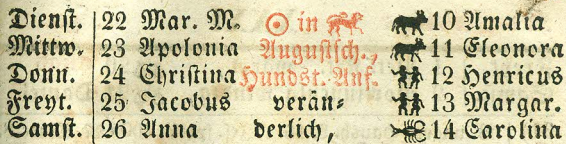 Dienst. 22 Mar. M. ☉ in ♌ 10 Amalia
Mittw. 23 Apolonia Augustsch., 11 Eleonora
Donn. 24 Christina Hundst. Anf. 12 Henricus
Freyt. 25 Jacobus verän- 13 Margar.
Samst. 26 Anna derlich, 14 Carolina